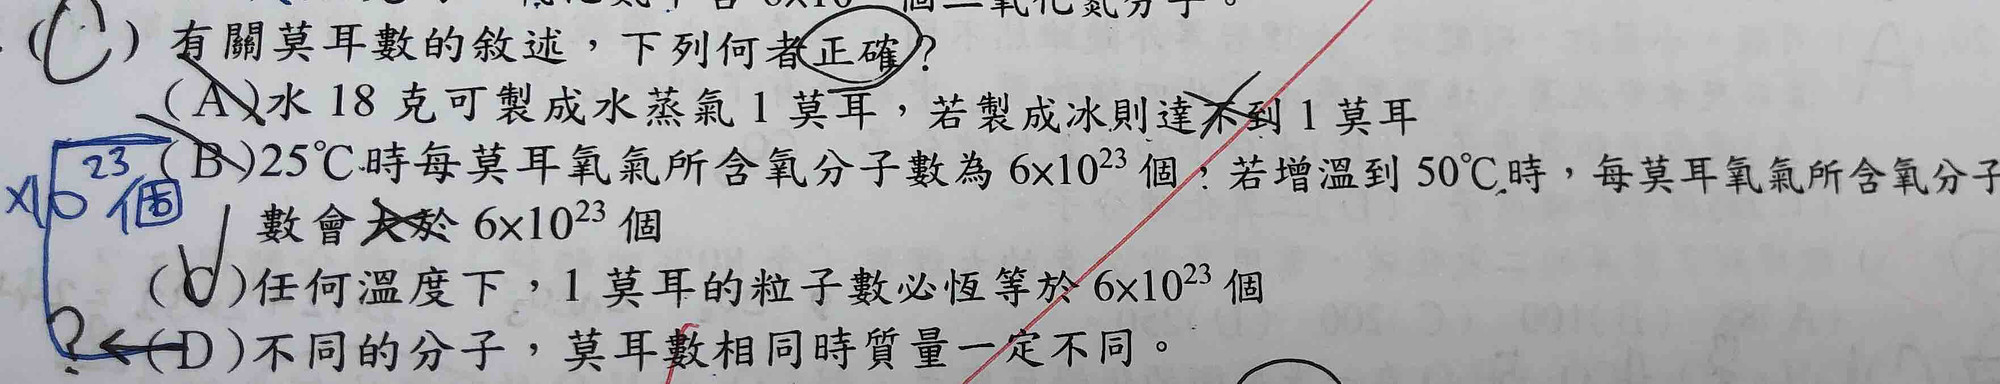 (C) 有關莫耳數的敘述，下列何者正確？
(A)水 18 克可製成水蒸氣 1 莫耳，若製成冰則達不到 1 莫耳
(B)25℃時每莫耳氧氣所含氧分子數為 6×10²³ 個；若增溫到 50℃時，每莫耳氧氣所含氧分子
數會大於 6×10²³ 個
(C)任何溫度下，1 莫耳的粒子數必恆等於 6×10²³ 個
(D)不同的分子，莫耳數相同時質量一定不同。
×10²³個
?←